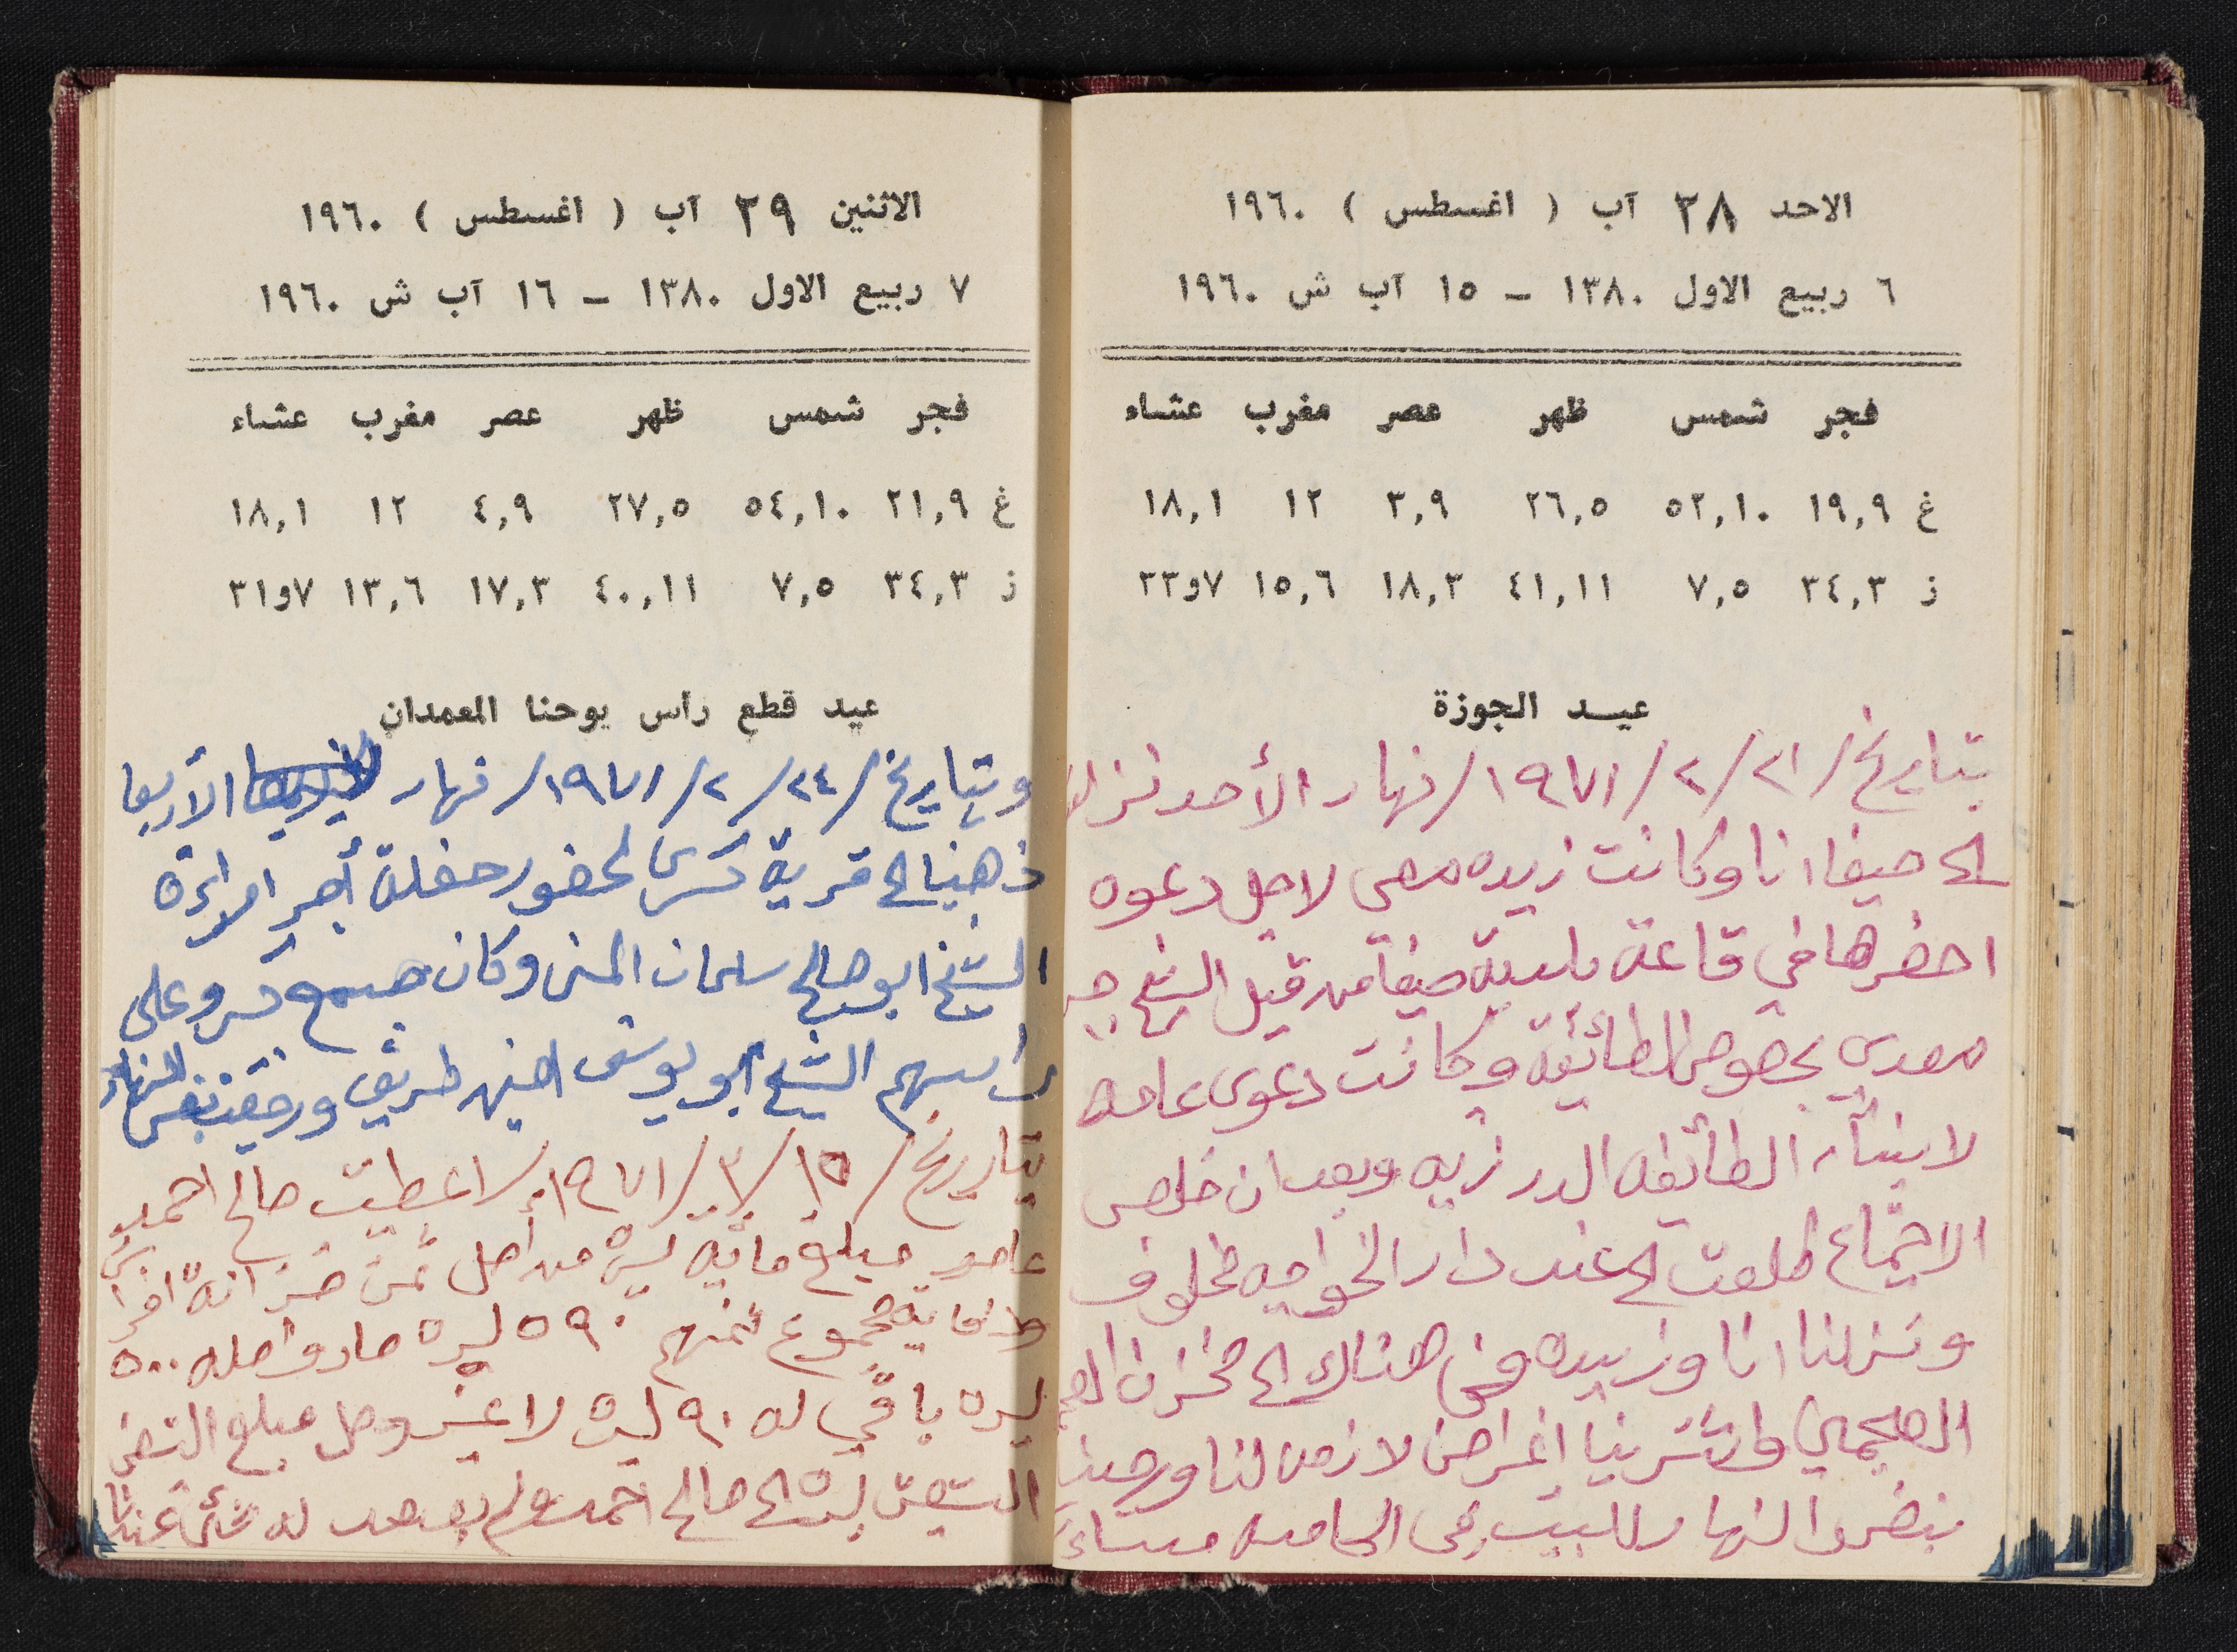 الاحد ٢٨ آب ( اغسطس ) ١٩٦٠
٦ ربيع الاول ١٣٨٠ – ١٥ آب ش ١٩٦٠
فجر شمس ظهر عصر مغرب عشاء
غ ١٩,٩ ٥٢,١٠ ٢٦,٥ ٣,٩ ١٢ ١٨,١
ز ٣٤,٣ ٧,٥ ٤١,١١ ١٨,٣ ١٥,٦ ٧و٣٣
عيد الجوزة
بتاريخ /٢١ /٢ /١٩٧١/ نهار الأحد نزلنا
الى حيفا انا وكانت زبده معي لاجل دعوه
احضرها في قاعة بلدية حيفا من قبل الشيخ
معدي بخصوص الطائفة وكانت دعوى عامه
لابناء الطائفه الدرزيه وبعد ان خلص
الاجتماع طلعت الى عند دار الخواجه مخلوف
ونزلنا انا وزبيده ومن هناك الى مخزن
العجمي واشترينا اغراض لازمه لنا ورجعنا
بنفس النهار للبيت في الخامسه مساءً
الاثنين ٢٩ آب ( اغسطس ) ١٩٦٠
٧ ربيع الاول ١٣٨٠ – ١٦ آب ش ١٩٦٠
فجر شمس ظهر عصر مغرب عشاء
غ ٢١,٩ ٥٤,١٠ ٢٧,٥ ٤,٩ ١٢ ١٨,١
ز ٣٤,٣ ٧,٥ ٤٠,١١ ١٧,٣ ١٣,٦ ٧و٣١
عيد قطع راس يوحنا المعمدان
وبتاريخ /٢٤ /٢ /١٩٧١/ نهار الأربعا
ذهبنا الى قرية كسرى لحضور حفلة أجر امراءة
الشيخ ابو صالح سلمان وكان على
راسهم الشيخ ابو يوسف امين طريف ورجعت بنفس النهار
بتاريخ /١٥ /٣ /١٩٧١/ اعطيت صالح احمد
عامر مبلغ مايه ليرة من اصل ثمن خزانة
مجموع ثمنهم ٥٩٠ ليرة صار واصله ٥٠٠
ليره باقي له ٩٠ ليرة لا غير وصل مبلغ
التسعين ليرة الى صالح احمد ولم يعد له شئ عندنا